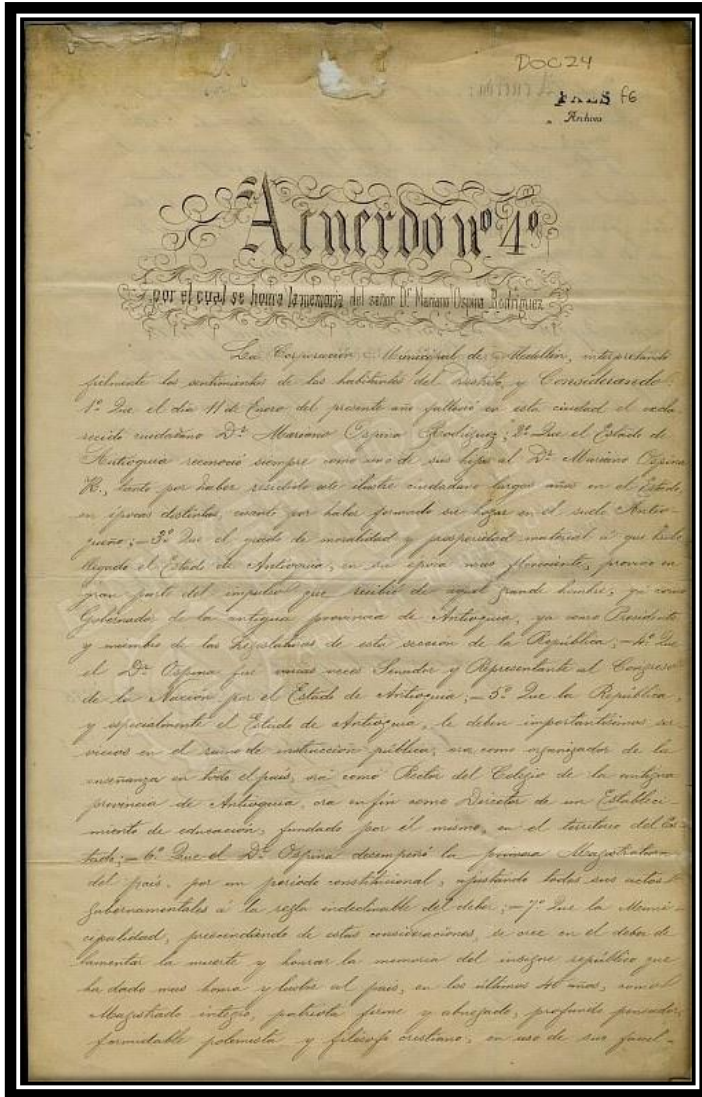 DOC 24
FAES f6
Archivo
Acuerdo nº 4º
por el cual se honra la memoria del señor Dr. Mariano Ospina Rodríguez
La Corporación Municipal de Medellín, interpretando
fielmente los sentimientos de los habitantes del Distrito, y Considerando:
1º Que el día 11 de Enero del presente año falleció en esta ciudad el escla-
recido ciudadano Dr. Mariano Ospina Rodríguez; 2º Que el Estado de
Antioquia reconoció siempre como uno de sus hijos al Dr. Mariano Ospina
R., tanto por haber residido este ilustre ciudadano largos años en el Estado,
en épocas distintas, cuanto por haber formado su hogar en el suelo Antio-
queño; — 3º Que el grado de moralidad y prosperidad material a que hubo
llegado el Estado de Antioquia, en su época mas floreciente, provino en
gran parte del impulso que recibió de aquel grande hombre, ya como
Gobernador de la antigua provincia de Antioquia, ya como Presidente
y miembro de las Legislativas de esta sección de la República; — 4º Que
el Dr. Ospina fue varias veces Senador y Representante al Congreso
de la Nación por el Estado de Antioquia; — 5º Que la República,
y especialmente el Estado de Antioquia, le deben importantísimos ser-
vicios en el ramo de instrucción pública, ora como organizador de la
enseñanza en todo el país, ora como Rector del Colegio de la antigua
provincia de Antioquia, ora en fin como Director de un Estableci-
miento de educación, fundado por él mismo, en el territorio del Es-
tado; — 6º Que el Dr. Ospina desempeñó la primera Magistratura
del país, por un período constitucional, ajustando todos sus actos
gubernamentales á la regla indeclinable del deber; — 7º Que la Muni-
cipalidad, prescindiendo de estas consideraciones, se cree en el deber de
lamentar la muerte y honrar la memoria del insigne repúblico que
ha dado mas honra y lustre al país, en los últimos 40 años, como
Magistrado íntegro, patriota firme y abnegado, profundo pensador,
formidable polemista y filósofo cristiano, en uso de sus facul-